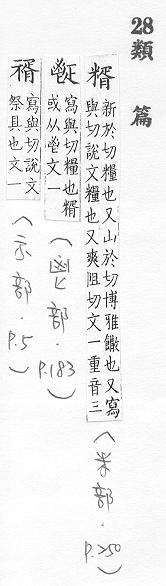 28 類篇
糈
新於切糧也又山於切博雅饊也又寫
與切說文糧也又爽阻切文一重音三
(米部. P.250)
寫與切糧也糈
或从鬯文一
(鬯部. P.183)
寫與切說文
祭具也文一
(示部. P.5)